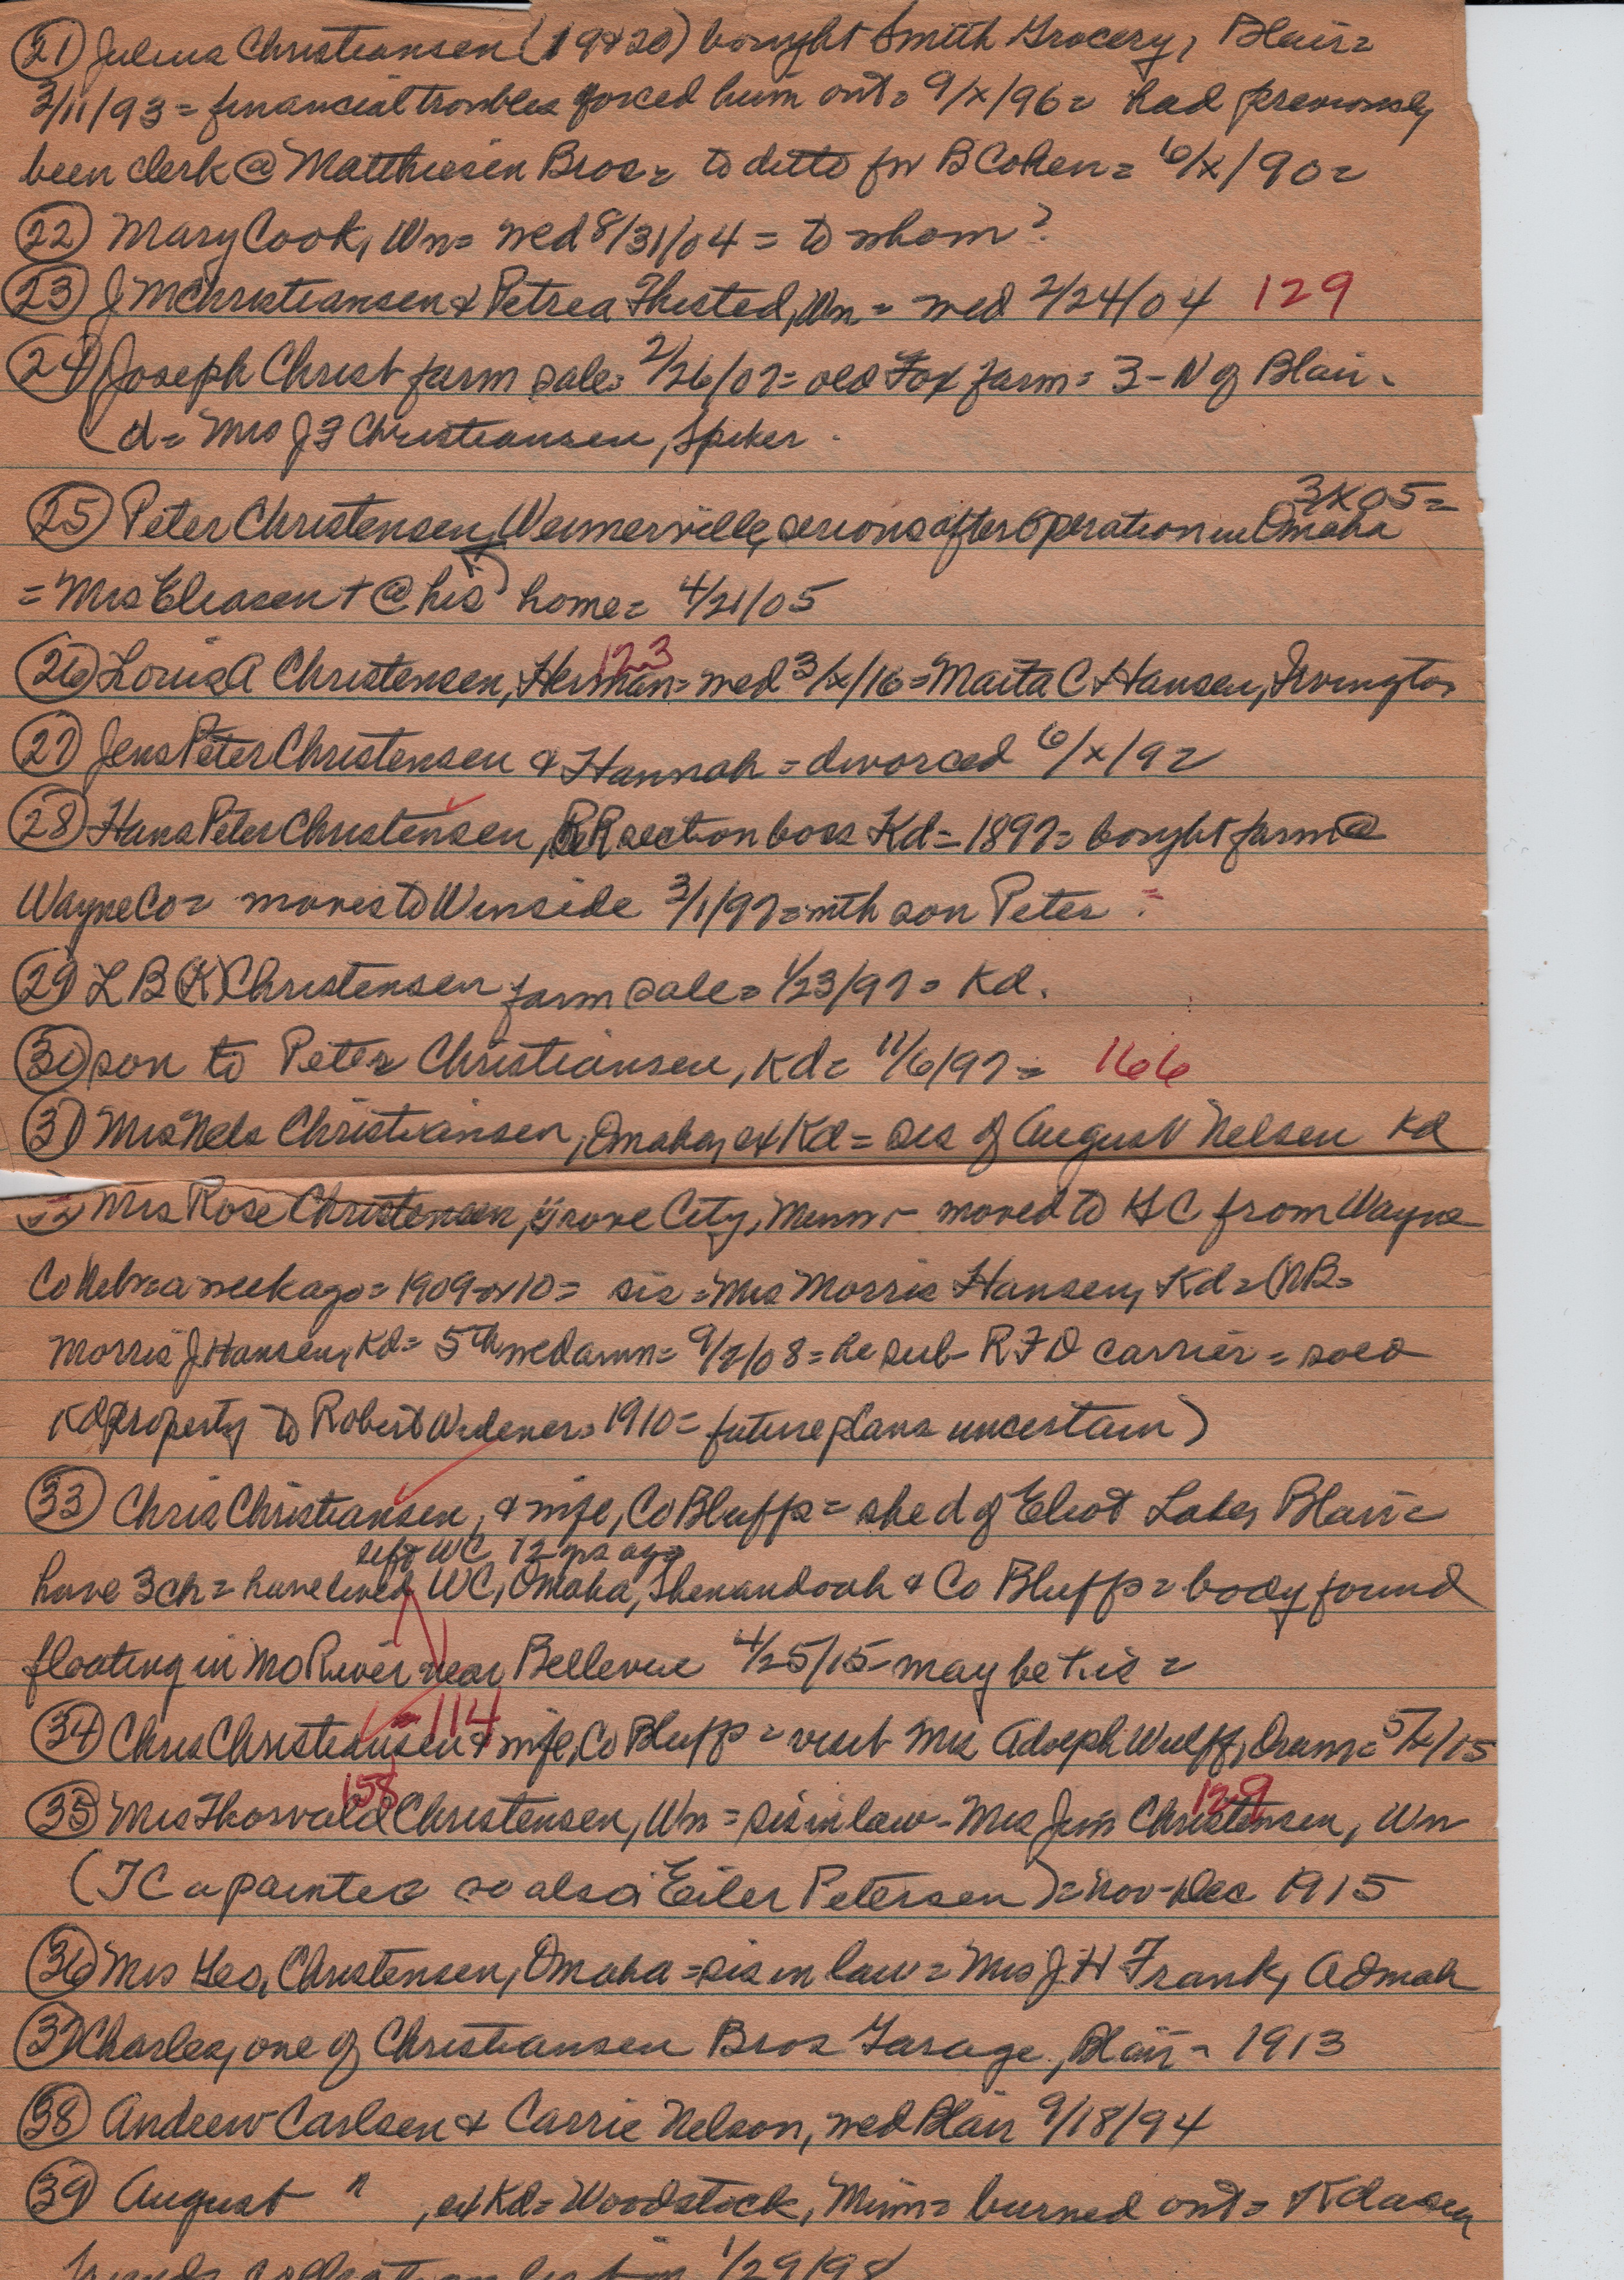 (21) Julius Christiansen (19+20) bought Smith Grocery, Blair=
3/11/93 = financial troubles forced him out= 9/x/96= had previously
been clerk @ Matthiesen Bros= to ditto for B Cohen= 6/x/90=
(22) Mary Cook, Wn= wed 8/31/04 = to whom?
(23) J M Christiansen & Petrea Thisted, Wn= wed 2/24/04 129
(24) Joseph Christ farm sale= 2/26/07= old Fox farm= 3-N of Blair-
(d= Mrs J F Christiansen, Spiker.
3x05=
(25) Peter Christensen, Weimerville, serious after operation in Omaha
= Mrs Eliasen + @ his home= 4/21/05
123
(26) Louis A Christensen, Herman= wed 3/x/16= Maita C Hansen, Irvington
(27) Jens Peter Christensen & Hannah = divorced 6/x/92
(28) Hans Peter Christensen, RR section boss Kd= 1897= bought farm @
Wayne Co= moves to Winside 3/1/97= with son Peter
(29) L B (K) Christensen farm sale= 1/23/97= Kd.
(30) son to Peter Christiansen, Kd= 11/6/97= 166
(31) Mrs Nels Christiansen, Omaha, ex Kd= sis of August Nelsen Kd
Mrs Rose Christensen, Grove City, Minn- moved to GC from Wayne
Co Nebr a week ago= 1909 or 10= sis= Mrs Morris Hansen, Kd= (NB=
Morris J Hansen, Kd= 5th wed ann= 9/2/08= he sub- RFD carrier= sold
Kd property to Robert Widener= 1910= future plans uncertain)
(33) Chris Christiansen, & wife, Co Bluffs= she d of Eliot Lakes Blair=
left WC 12 yrs ago
have 3 ch= have lived WC, Omaha, Shenandoah & Co Bluffs= body found
floating in Mo River near Bellevue 4/25/15- may be his=
=114
(34) Chris Christiansen & wife, Co Bluffs= visit Mrs Adolph Wulff, Orum= 5/x/15
158 129
(35) Mrs Thorvald Christensen, Wn= sis in law- Mrs Jim Christensen, Wn
(TC a painter so also Eiler Petersen)= Nov-Dec 1915
(36) Mrs Geo, Christensen, Omaha= sis in law= Mrs J H Frank, Admah
(37) Charles, one of Christiansen Bros Garage, Blair- 1913
(38) Andrew Carlsen & Carrie Nelson, wed Blair 9/18/94
(39) August " , ex Kd= Woodstock, Minn= burned out=
1/29/98